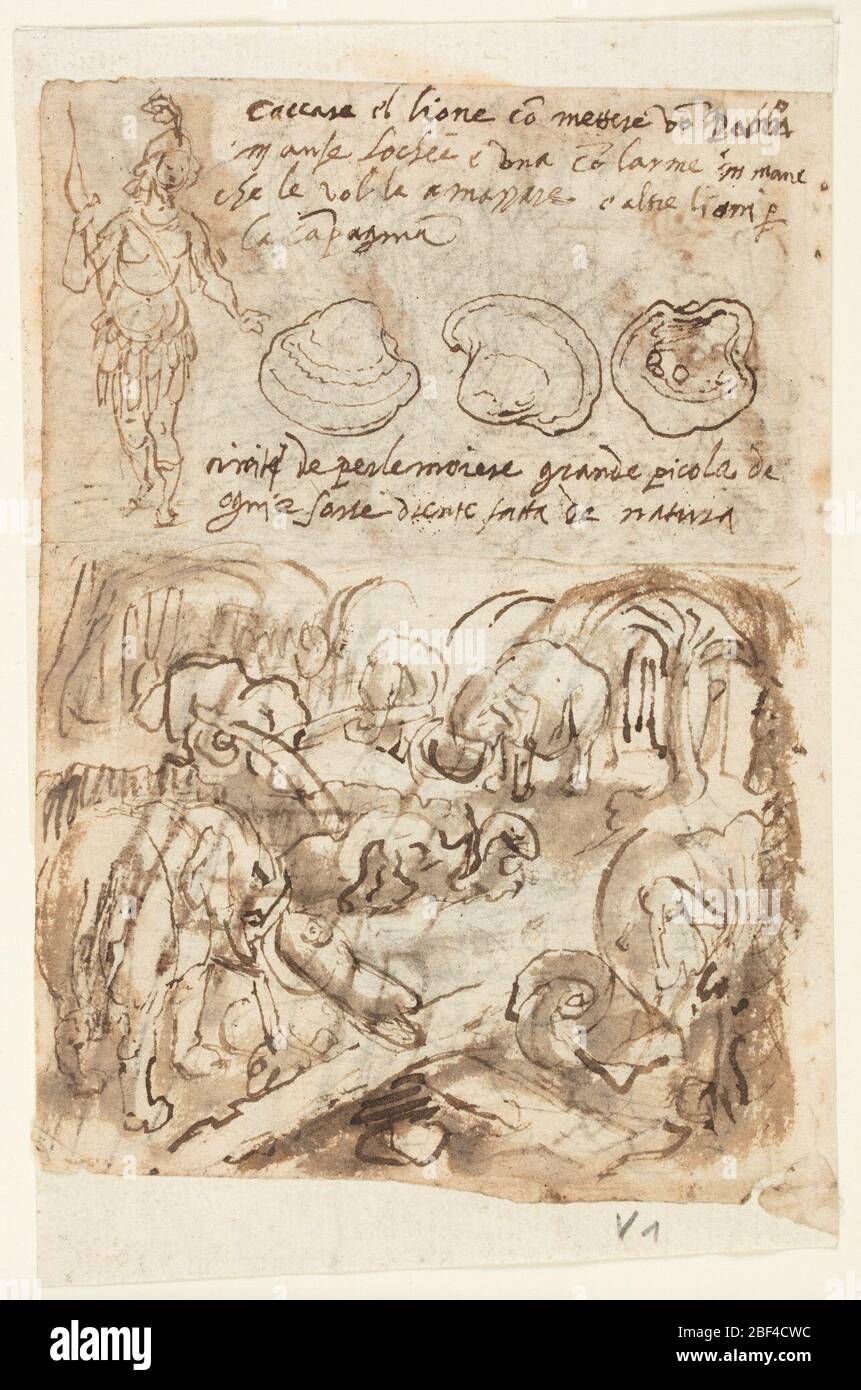 caccare el lione cō mettere
in ante e una cō larme in mane
che le vol la amazzare e altre lioni p
la cāpagnia
de perlemoiere grande picola de
ogni sorte diente fatta de natura
V 1
alamy
Image ID: 2BF4CWC
www.alamy.com